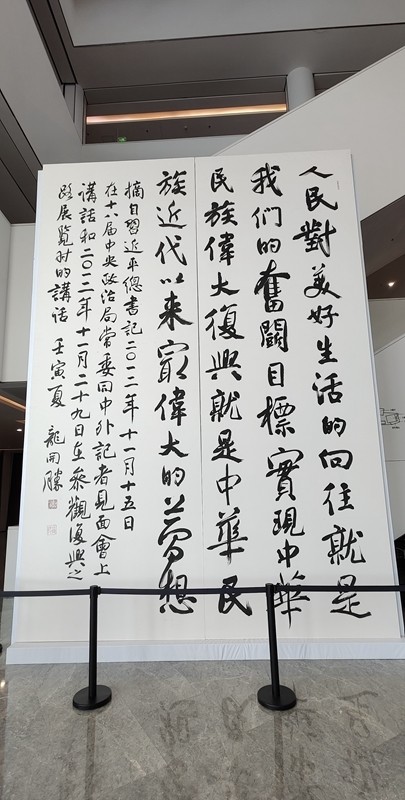 人民對美好生活的向往就是
我们的奮鬪目標實現中華
民族偉大復興就是中華民
族近代以来冣偉大的夢想
摘自習近平總書記二〇一二年十一月十五日
在十八届中央政治局常委同中外記者見面會上
講話和二〇一二年十一月二十九日在參觀復興之
路展覽时的講話 壬寅夏 龍開勝